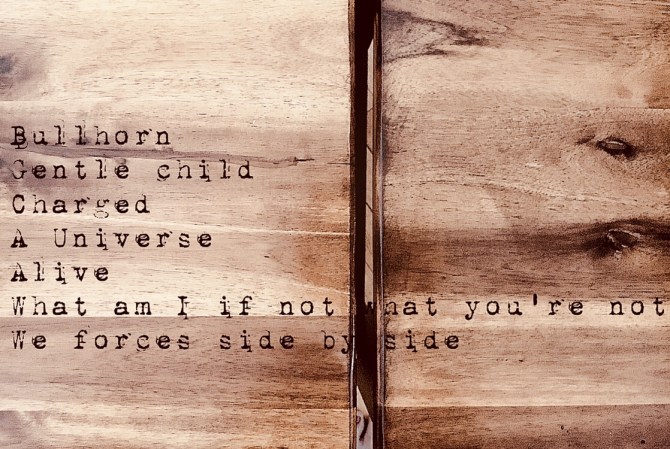 Bullhorn
Gentle child
Charged
A Universe
Alive
What am I if not what you're not
We forces side by side